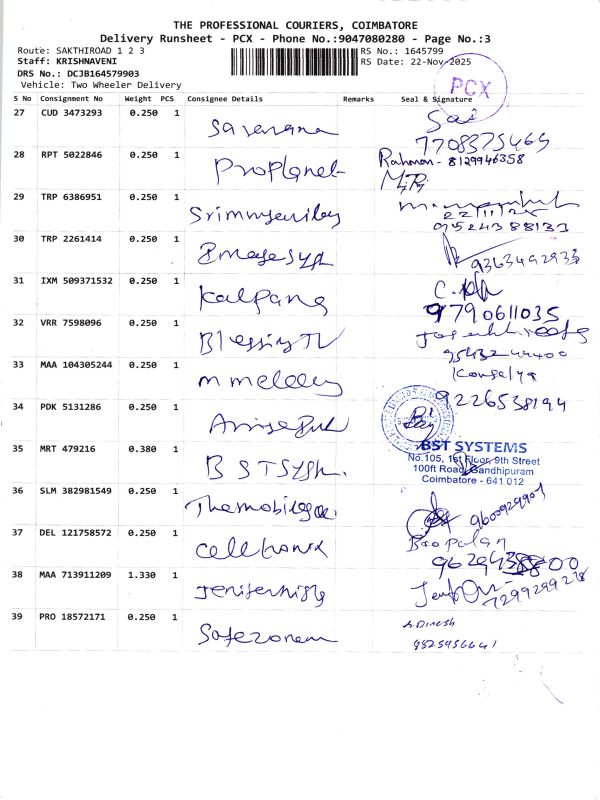 THE PROFESSIONAL COURIERS, COIMBATORE
Delivery Runsheet - PCX - Phone No.:9047080280 - Page No.:3
Route: SAKTHIROAD 1 2 3
RS No.: 1645799
Staff: KRISHNAVENI
RS Date: 22-Nov-2025
DRS No.: DCJB164579903
Vehicle: Two Wheeler Delivery
PCX
S No Consignment No Weight PCS Consignee Details Remarks Seal & Signature
27 CUD 3473293 0.250 1 Saravana Sai
7708375469
28 RPT 5022846 0.250 1 Proplanet Rahman - 8129946358
29 TRP 6386951 0.250 1
22/11/25
9524388133
30 TRP 2261414 0.250 1 9363492933
31 IXM 509371532 0.250 1 Kalpana
9790611035
32 VRR 7598096 0.250 1 Blessing TV
33 MAA 104305244 0.250 1 Kousalya
9226538194
34 PDK 5131286 0.250 1
35 MRT 479216 0.380 1 BST System
BST SYSTEMS
No.105, 1st Floor, 9th Street
100ft Road, Gandhipuram
Coimbatore - 641 012
36 SLM 382981549 0.250 1 9600929901
37 DEL 121758572 0.250 1 Celltronix
38 MAA 713911209 1.330 1 7299299278
39 PRO 18572171 0.250 1 Safezonem S. Dinesh
9825956641